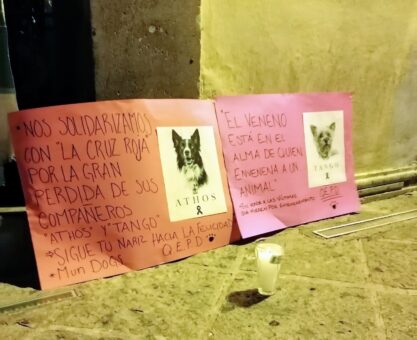 • NOS SOLIDARIZAMOS
CON "LA CRUZ ROJA
POR LA GRAN
PERDIDA DE SUS
COMPAÑEROS
"ATHOS" Y "TANGO"
• SIGUE TU NARIZ HACIA LA FELICIDAD
Q.E.P.D
• MUN DOGS
ATHOS
"EL VENENO
ESTÁ EN EL
ALMA DE QUIEN
ENVENENA A UN
ANIMAL"
TANGO
QEPD